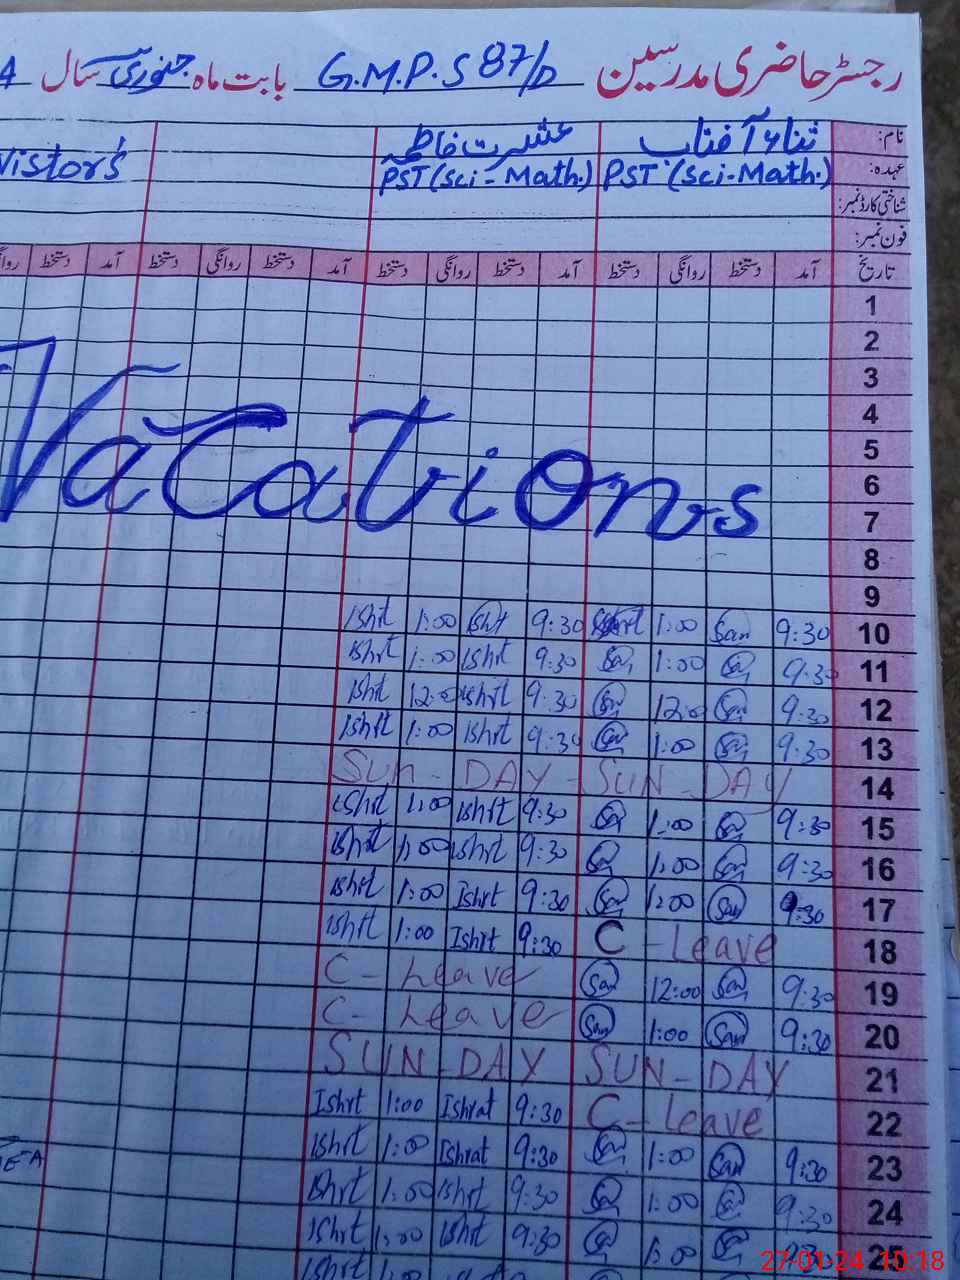 رجسٹر حاضری مدرسین G.M.P.S 87/D بابت ماہ جنوری سال 4
نام: ثناء آفتاب عشرت فاطمہ
عہدہ: PST (Sci-Math.) PST (Sci-Math.) Vistors
شناختی کارڈ نمبر:
فون نمبر:
تاریخ آمد دستخط روانگی دستخط آمد دستخط روانگی دستخط آمد دستخط روانگی دستخط آمد دستخط
1
2
3
4
5
Vacations
6
7
8
9
Ishrt 1:00 Isht 9:30 1:00 San 9:30 10
Ishrt 1:00 Ishrt 9:30 1:00 9:30 11
Ishrt 12:00 Ishrt 9:30 12:00 San 9:30 12
Ishrt 1:00 Ishrt 9:30 1:00 9:30 13
SUN-DAY-SUN-DAY 14
Ishrt 1:00 Ishrt 9:30 1:00 9:30 15
Ishrt 1:00 Ishrt 9:30 1:00 9:30 16
Ishrt 1:00 Ishrt 9:30 San 1:00 San 9:30 17
Ishrt 1:00 Ishrt 9:30 C-Leave 18
C-Leave San 12:00 San 9:30 19
C-Leave San 1:00 San 9:30 20
SUN-DAY SUN-DAY 21
Ishrt 1:00 Ishrat 9:30 C-Leave 22
Ishrt 1:00 Ishrat 9:30 1:00 San 9:30 23
Ishrt 1:00 Ishrt 9:30 1:00 9:30 24
Ishrt 1:00 Ishrt 9:30 1:00 9:30 25
Ishrt 1:00 Ishrt 9:30
27-01-24 10:18